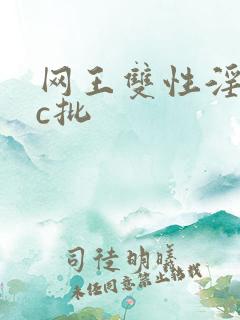 网王雙性淫
c批
司徒明曦
未经同意禁止转载